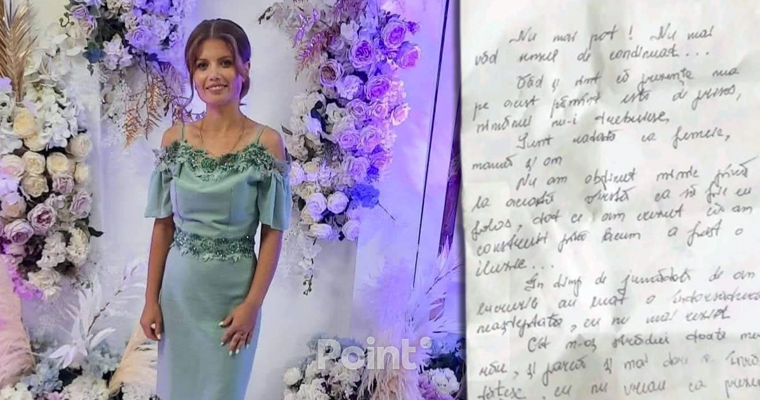 Nu mai pot! Nu mai
văd sensul de continuat...
Văd și simt că prezența mea
pe acest pământ este de prisos,
nimănui nu-i trebuiesc,
Sunt ratată ca femeie,
mamă și om
Nu am obținut nimic până
la această vârstă ca să fie cu
folos, tot ce am crezut că am
construit până acum a fost o
iluzie...
În timp de jumătate de an
au
, eu nu mai exist
Cât m-aș strădui toate
rău, și parcă și mai
, eu nu vreau ca
Point